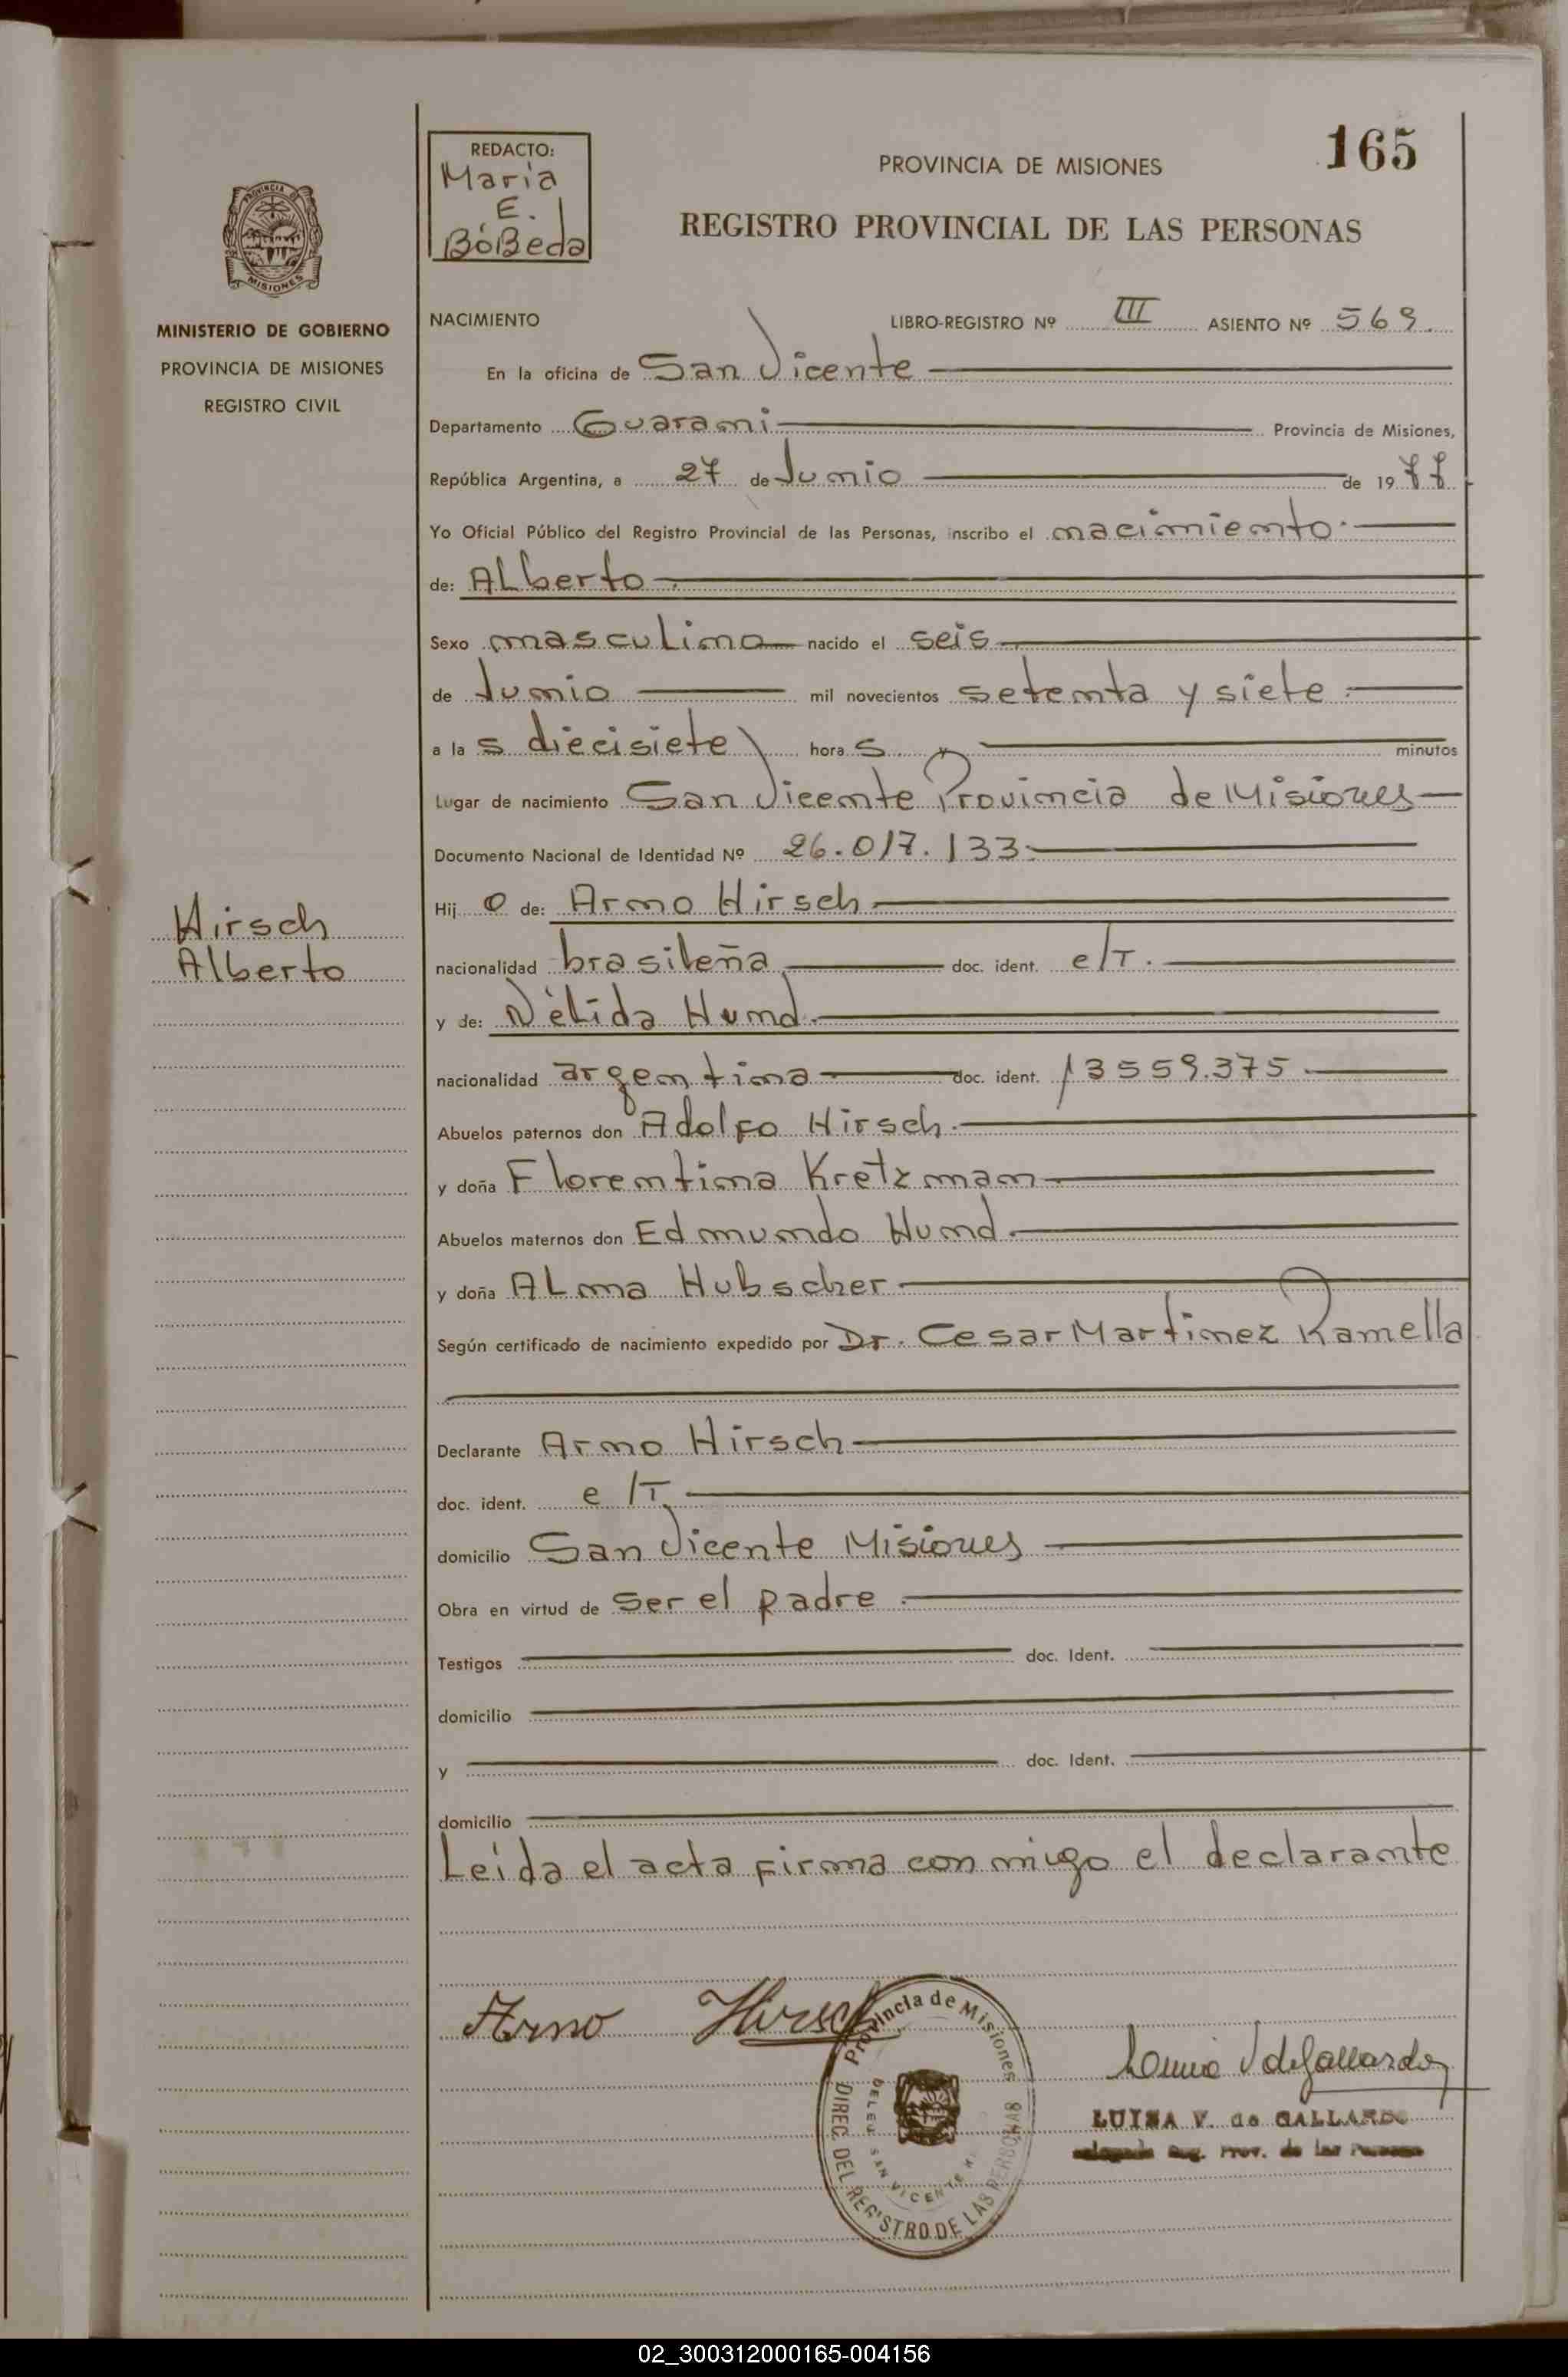 165
REDACTO:
Maria
E.
BóBeda
PROVINCIA DE MISIONES
REGISTRO PROVINCIAL DE LAS PERSONAS
PROVINCIA DE
MISIONES
MINISTERIO DE GOBIERNO
PROVINCIA DE MISIONES
REGISTRO CIVIL
NACIMIENTO LIBRO-REGISTRO Nº III ASIENTO Nº 569.
En la oficina de San Vicente
Departamento Guarani Provincia de Misiones,
República Argentina, a 27 de Junio de 1977
Yo Oficial Público del Registro Provincial de las Personas, inscribo el nacimiento
de: Alberto
Sexo masculino nacido el seis
de Junio mil novecientos setenta y siete
a las diecisiete horas y minutos
Lugar de nacimiento San Vicente Provincia de Misiones
Documento Nacional de Identidad Nº 26.017.133
Hijo de: Arno Hirsch
Hirsch
Alberto
nacionalidad brasileña doc. ident. e/T.
y de: Nélida Hund
nacionalidad argentina doc. ident. 13559.375
Abuelos paternos don Adolfo Hirsch
y doña Florentina Kretzman
Abuelos maternos don Edmundo Hund
y doña Alma Hubscher
Según certificado de nacimiento expedido por Dr. Cesar Martinez Ramella
Declarante Arno Hirsch
doc. ident. e/T.
domicilio San Vicente Misiones
Obra en virtud de ser el padre
Testigos doc. Ident.
domicilio
y doc. Ident.
domicilio
Leida el acta firma con migo el declarante
Arno Hirsch
Provincia de Misiones
DIREC. DEL REGISTRO DE LAS PERSONAS
DELEG. SAN VICENTE
V de Gallardo
LUISA V. de GALLARDO
Reg. Prov. de las Personas
02_300312000165-004156